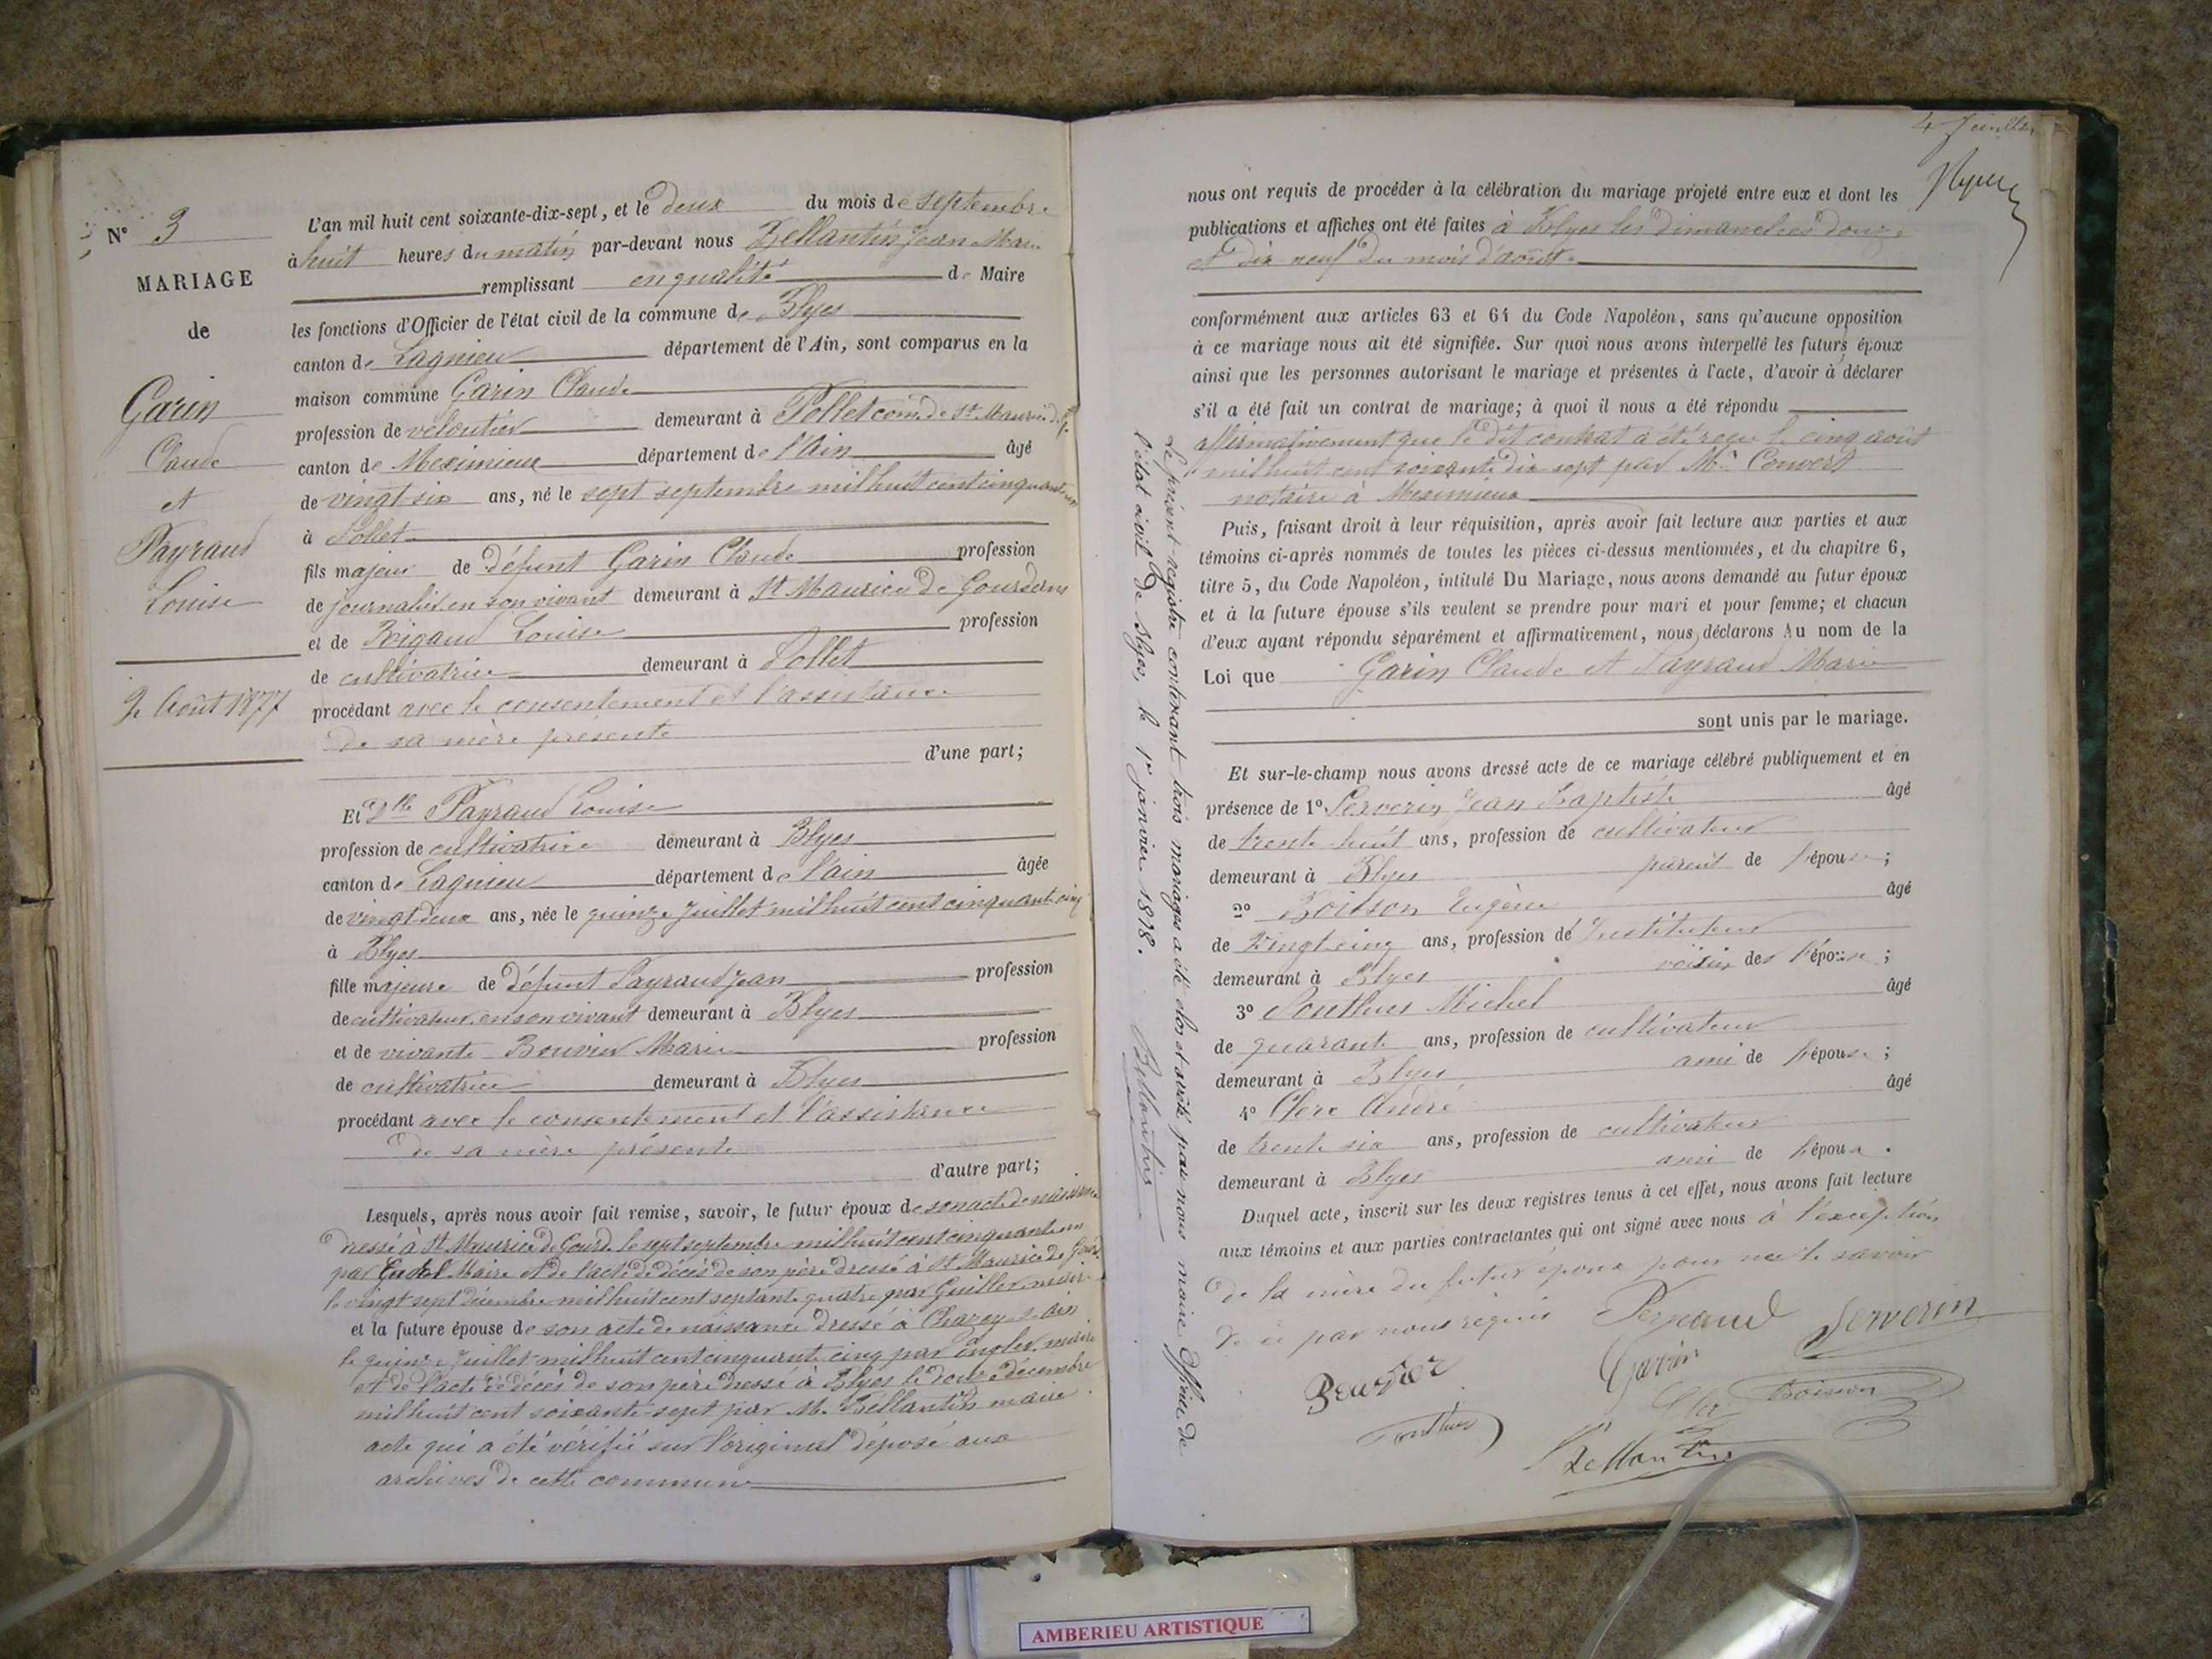 N° 3
MARIAGE
de
Garin
Claude
et
Payraud
Louise
2 Août 1877
L'an mil huit cent soixante-dix-sept, et le deux du mois de septembre
à huit heures du matin par-devant nous Bellantin Jean Marie
remplissant en qualité de Maire
les fonctions d'Officier de l'état civil de la commune de Blyes
canton de Lagnieu département de l'Ain, sont comparus en la
maison commune Garin Claude
profession de veloutier demeurant à Pollet com. de St Maurice de G.
canton de Meximieux département de l'Ain âgé
de vingt six ans, né le sept septembre mil huit cent cinquante un
à Pollet
fils majeur de défunt Garin Claude profession
de journalier en son vivant demeurant à St Maurice de Gourdans
et de Rigaud Louise profession
de cultivatrice demeurant à Pollet
procédant avec le consentement et l'assistance
de sa mère présente
d'une part;
Et Dlle Payraud Louise
profession de cultivatrice demeurant à Blyes
canton de Lagnieu département de l'ain âgée
de vingt deux ans, née le quinze Juillet mil huit cent cinquante cinq
à Blyes
fille majeure de défunt Payraud Jean profession
de cultivateur en son vivant demeurant à Blyes
et de vivante Bouvier Marie profession
de cultivatrice demeurant à Blyes
procédant avec le consentement et l'assistance
de sa mère présente
d'autre part;
Lesquels, après nous avoir fait remise, savoir, le futur époux de son acte de naissance
dressé à St Maurice de Gourd. le sept septembre mil huit cent cinquante un
par Maire et de l'acte de décès de son père dressé à St Maurice de Gourd.
le vingt sept décembre mil huit cent septante quatre par Guillet maire
et la future épouse de son acte de naissance dressé à Chazey s. ain
le quinze Juillet mil huit cent cinquante cinq par maire
et de l'acte de décès de son père dressé à Blyes le décembre
mil huit cent soixante-sept par M. Bellantin maire
acte qui a été vérifié sur l'original déposé aux
archives de cette commune
4 feuillet
nous ont requis de procéder à la célébration du mariage projeté entre eux et dont les
publications et affiches ont été faites à Blyes les dimanches douze
et dix-neuf du mois d'août
conformément aux articles 63 et 64 du Code Napoléon, sans qu'aucune opposition
à ce mariage nous ait été signifiée. Sur quoi nous avons interpellé les futurs époux
ainsi que les personnes autorisant le mariage et présentes à l'acte, d'avoir à déclarer
s'il a été fait un contrat de mariage; à quoi il nous a été répondu
affirmativement que le dit contrat a été reçu le cinq août
mil huit cent soixante dix sept par Me Convert
notaire à Meximieux
Puis, faisant droit à leur réquisition, après avoir fait lecture aux parties et aux
témoins ci-après nommés de toutes les pièces ci-dessus mentionnées, et du chapitre 6,
titre 5, du Code Napoléon, intitulé Du Mariage, nous avons demandé au futur époux
et à la future épouse s'ils veulent se prendre pour mari et pour femme; et chacun
d'eux ayant répondu séparément et affirmativement, nous déclarons Au nom de la
Loi que Garin Claude et Payraud Marie
sont unis par le mariage.
Et sur-le-champ nous avons dressé acte de ce mariage célébré publiquement et en
présence de 1° Serverin Jean Baptiste âgé
de trente huit ans, profession de cultivateur
demeurant à Blyes parent de l'épouse;
2° Boisson Eugène âgé
de Vingt cinq ans, profession de Instituteur
demeurant à Blyes voisin de l'épouse;
3° Ponthus Michel âgé
de quarante ans, profession de cultivateur
demeurant à Blyes ami de l'épouse;
4° Clerc André âgé
de trente six ans, profession de cultivateur
demeurant à Blyes ami de l'épouse.
Duquel acte, inscrit sur les deux registres tenus à cet effet, nous avons fait lecture
aux témoins et aux parties contractantes qui ont signé avec nous à l'exception
de la mère du futur époux pour ne le savoir
de ce par nous requis Peyraud Serverin
Garin
Bouvier Boisson
Ponthus
Bellantin
Le présent registre contenant trois mariages a été clos et arrêté par nous maire Officier de
l'état civil de Blyes, le 1er janvier 1878.
Bellantin
AMBERIEU ARTISTIQUE